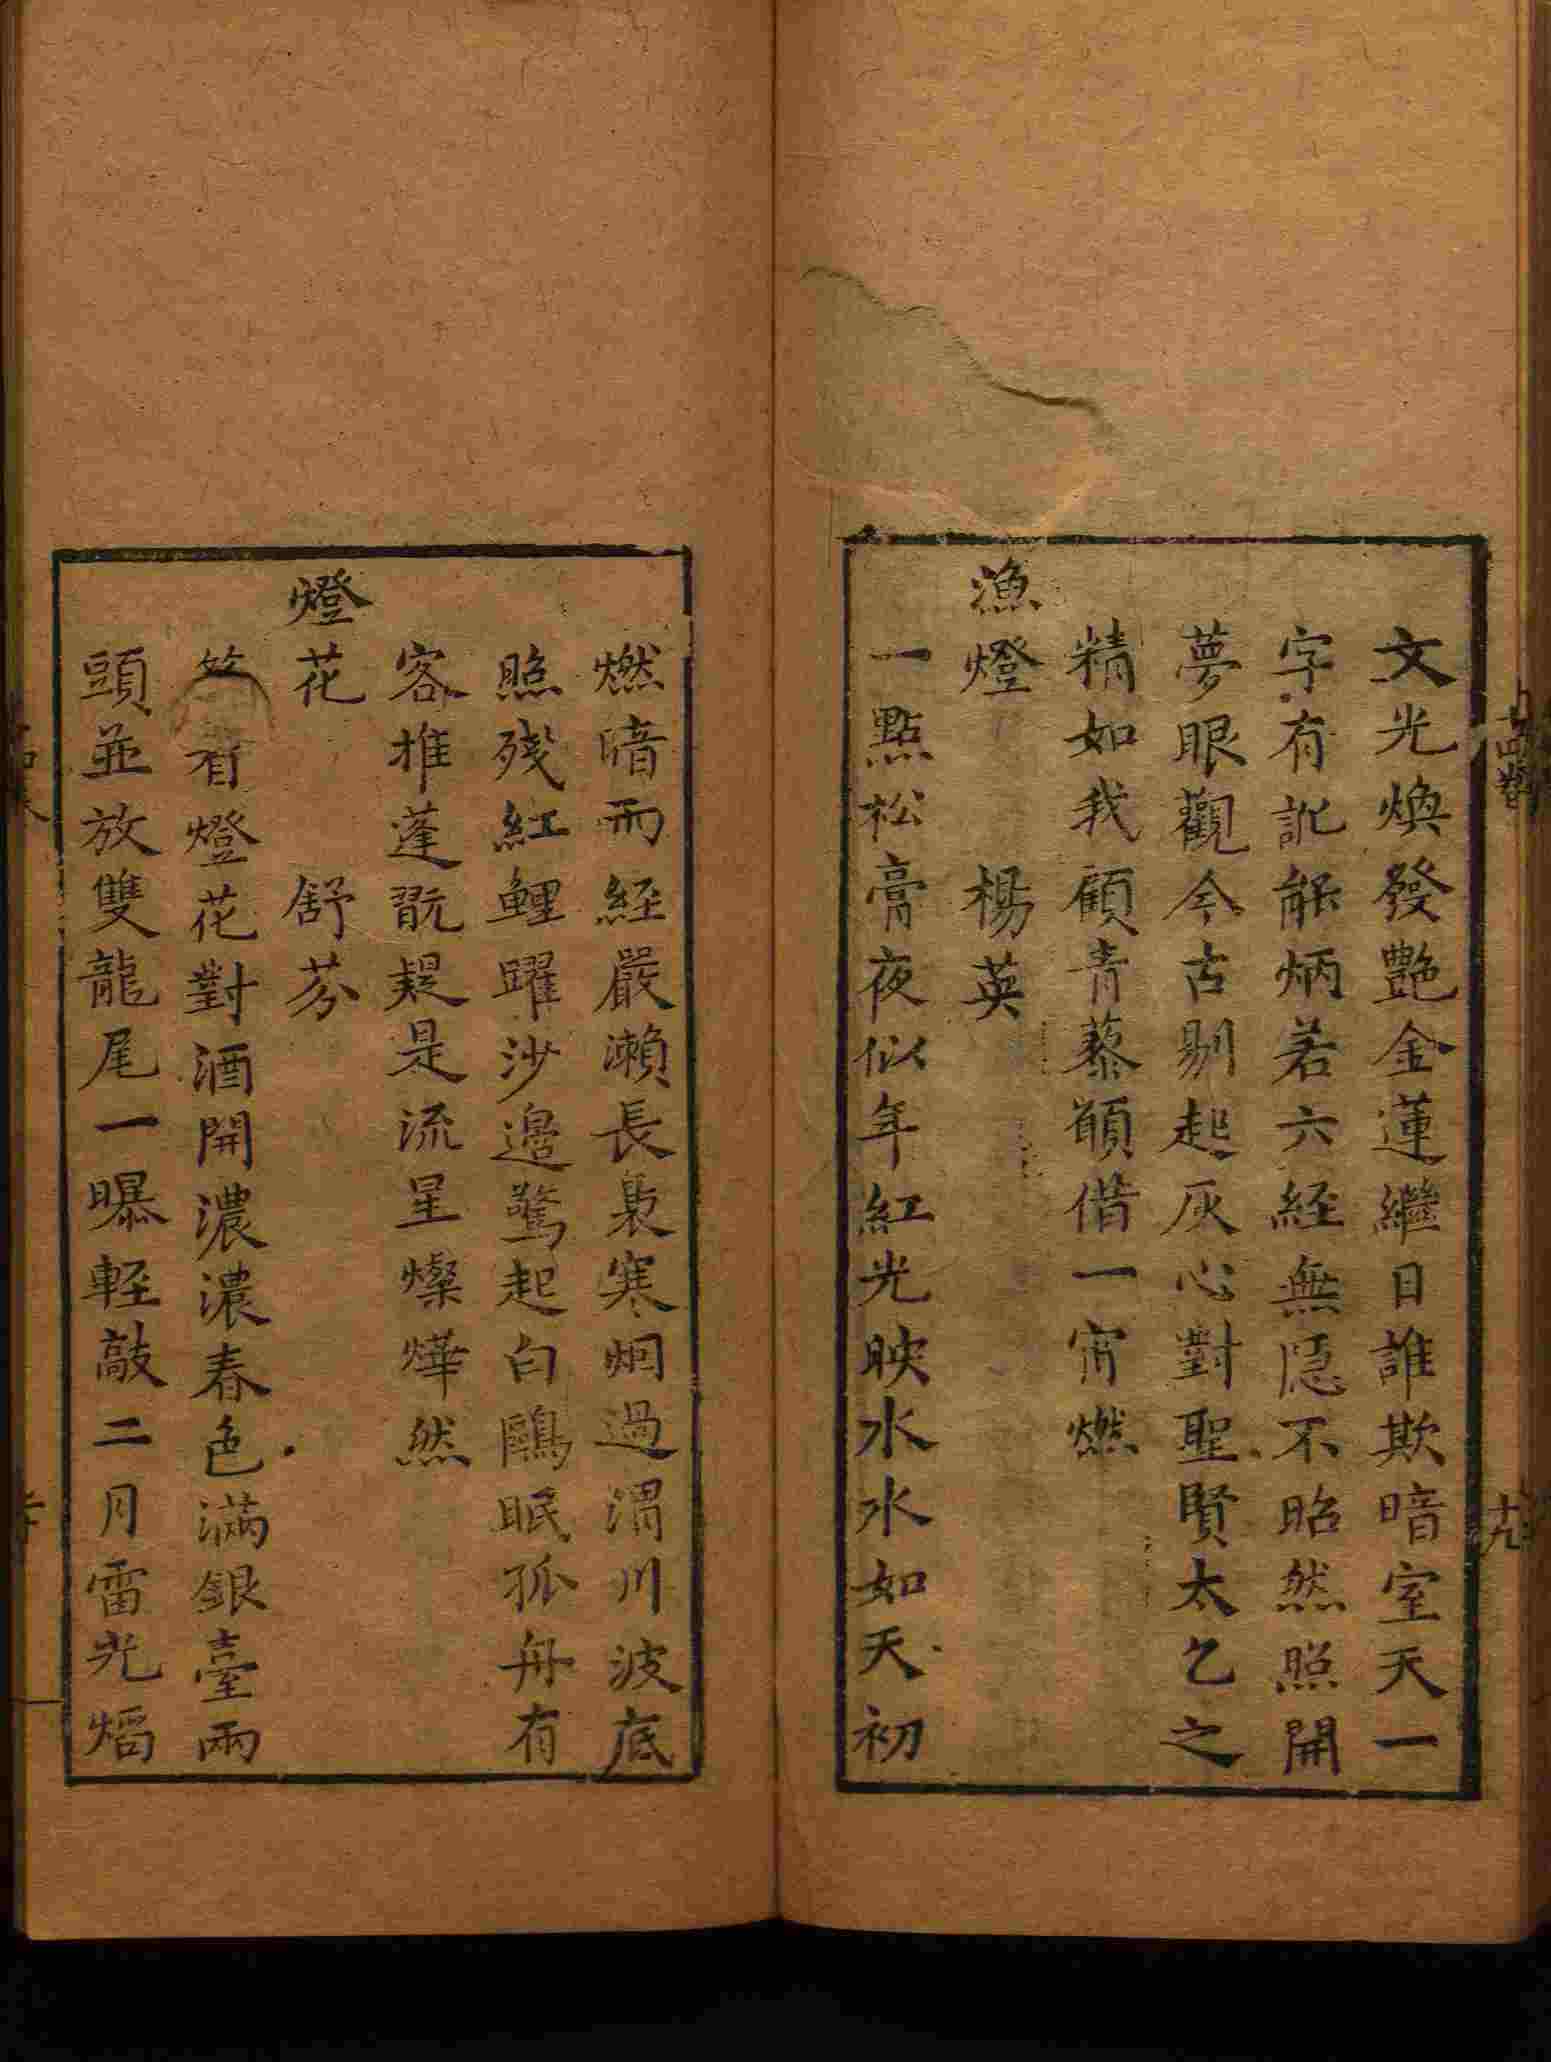 文光煥發艷金蓮繼日誰欺暗室天一
字有訛能炳若六経無隠不昭然照開
夢眼觀今古剔起灰心對聖賢太乞之
精如我顧青藜願借一宵燃
漁燈 楊英
一點松膏夜似年紅光映水水如天初
燃暗而経嚴瀨長裊寒烟過渭川波底
照残紅鯉躍沙邉驚起白鷗眠孤舟有
客推蓬翫是流星燦燁然
燈花 舒芬
笑看燈花對酒開濃濃春色滿銀臺兩
頭並放雙龍尾一曝輕敲二月雷光熖
十九